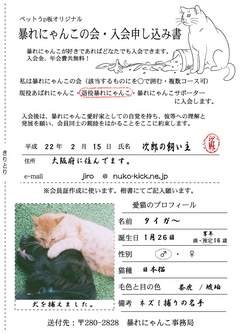 ペットうp板オリジナル
暴れにゃんこの会・入会申し込み書
暴れにゃんこが好きであればどなたでも入会できます。
入会金、年会費共無料！
私は暴れにゃんこの会（該当するものに○で囲む・複数コース可）
現役あばれにゃんこ・退役暴れにゃんこ・暴れにゃんこサポーター
に入会します。
入会後は、暴れにゃんこ愛好家としての自覚を持ち、彼等への理解と
発展を願い、会員同士の親睦をはかることをここに約束します。
平成 22 年 2 月 15 日 氏名 次郎の飼い主
住所 大阪府に住んでます。
e-mail jiro @ nuko-kick.ne.jp
※会員証作成に使います。楷書にてご記入願います。
きりとり
愛猫のプロフィール
名前 タイガ〜
誕生日 1月26日
性別 ♂ ・ ♀
猫種 日本猫
毛色と目の色 茶虎 / 琥珀
備考 ネズミ捕りの名手
犬を捕えました。
送付先：〒280-2828 暴れにゃんこ事務局